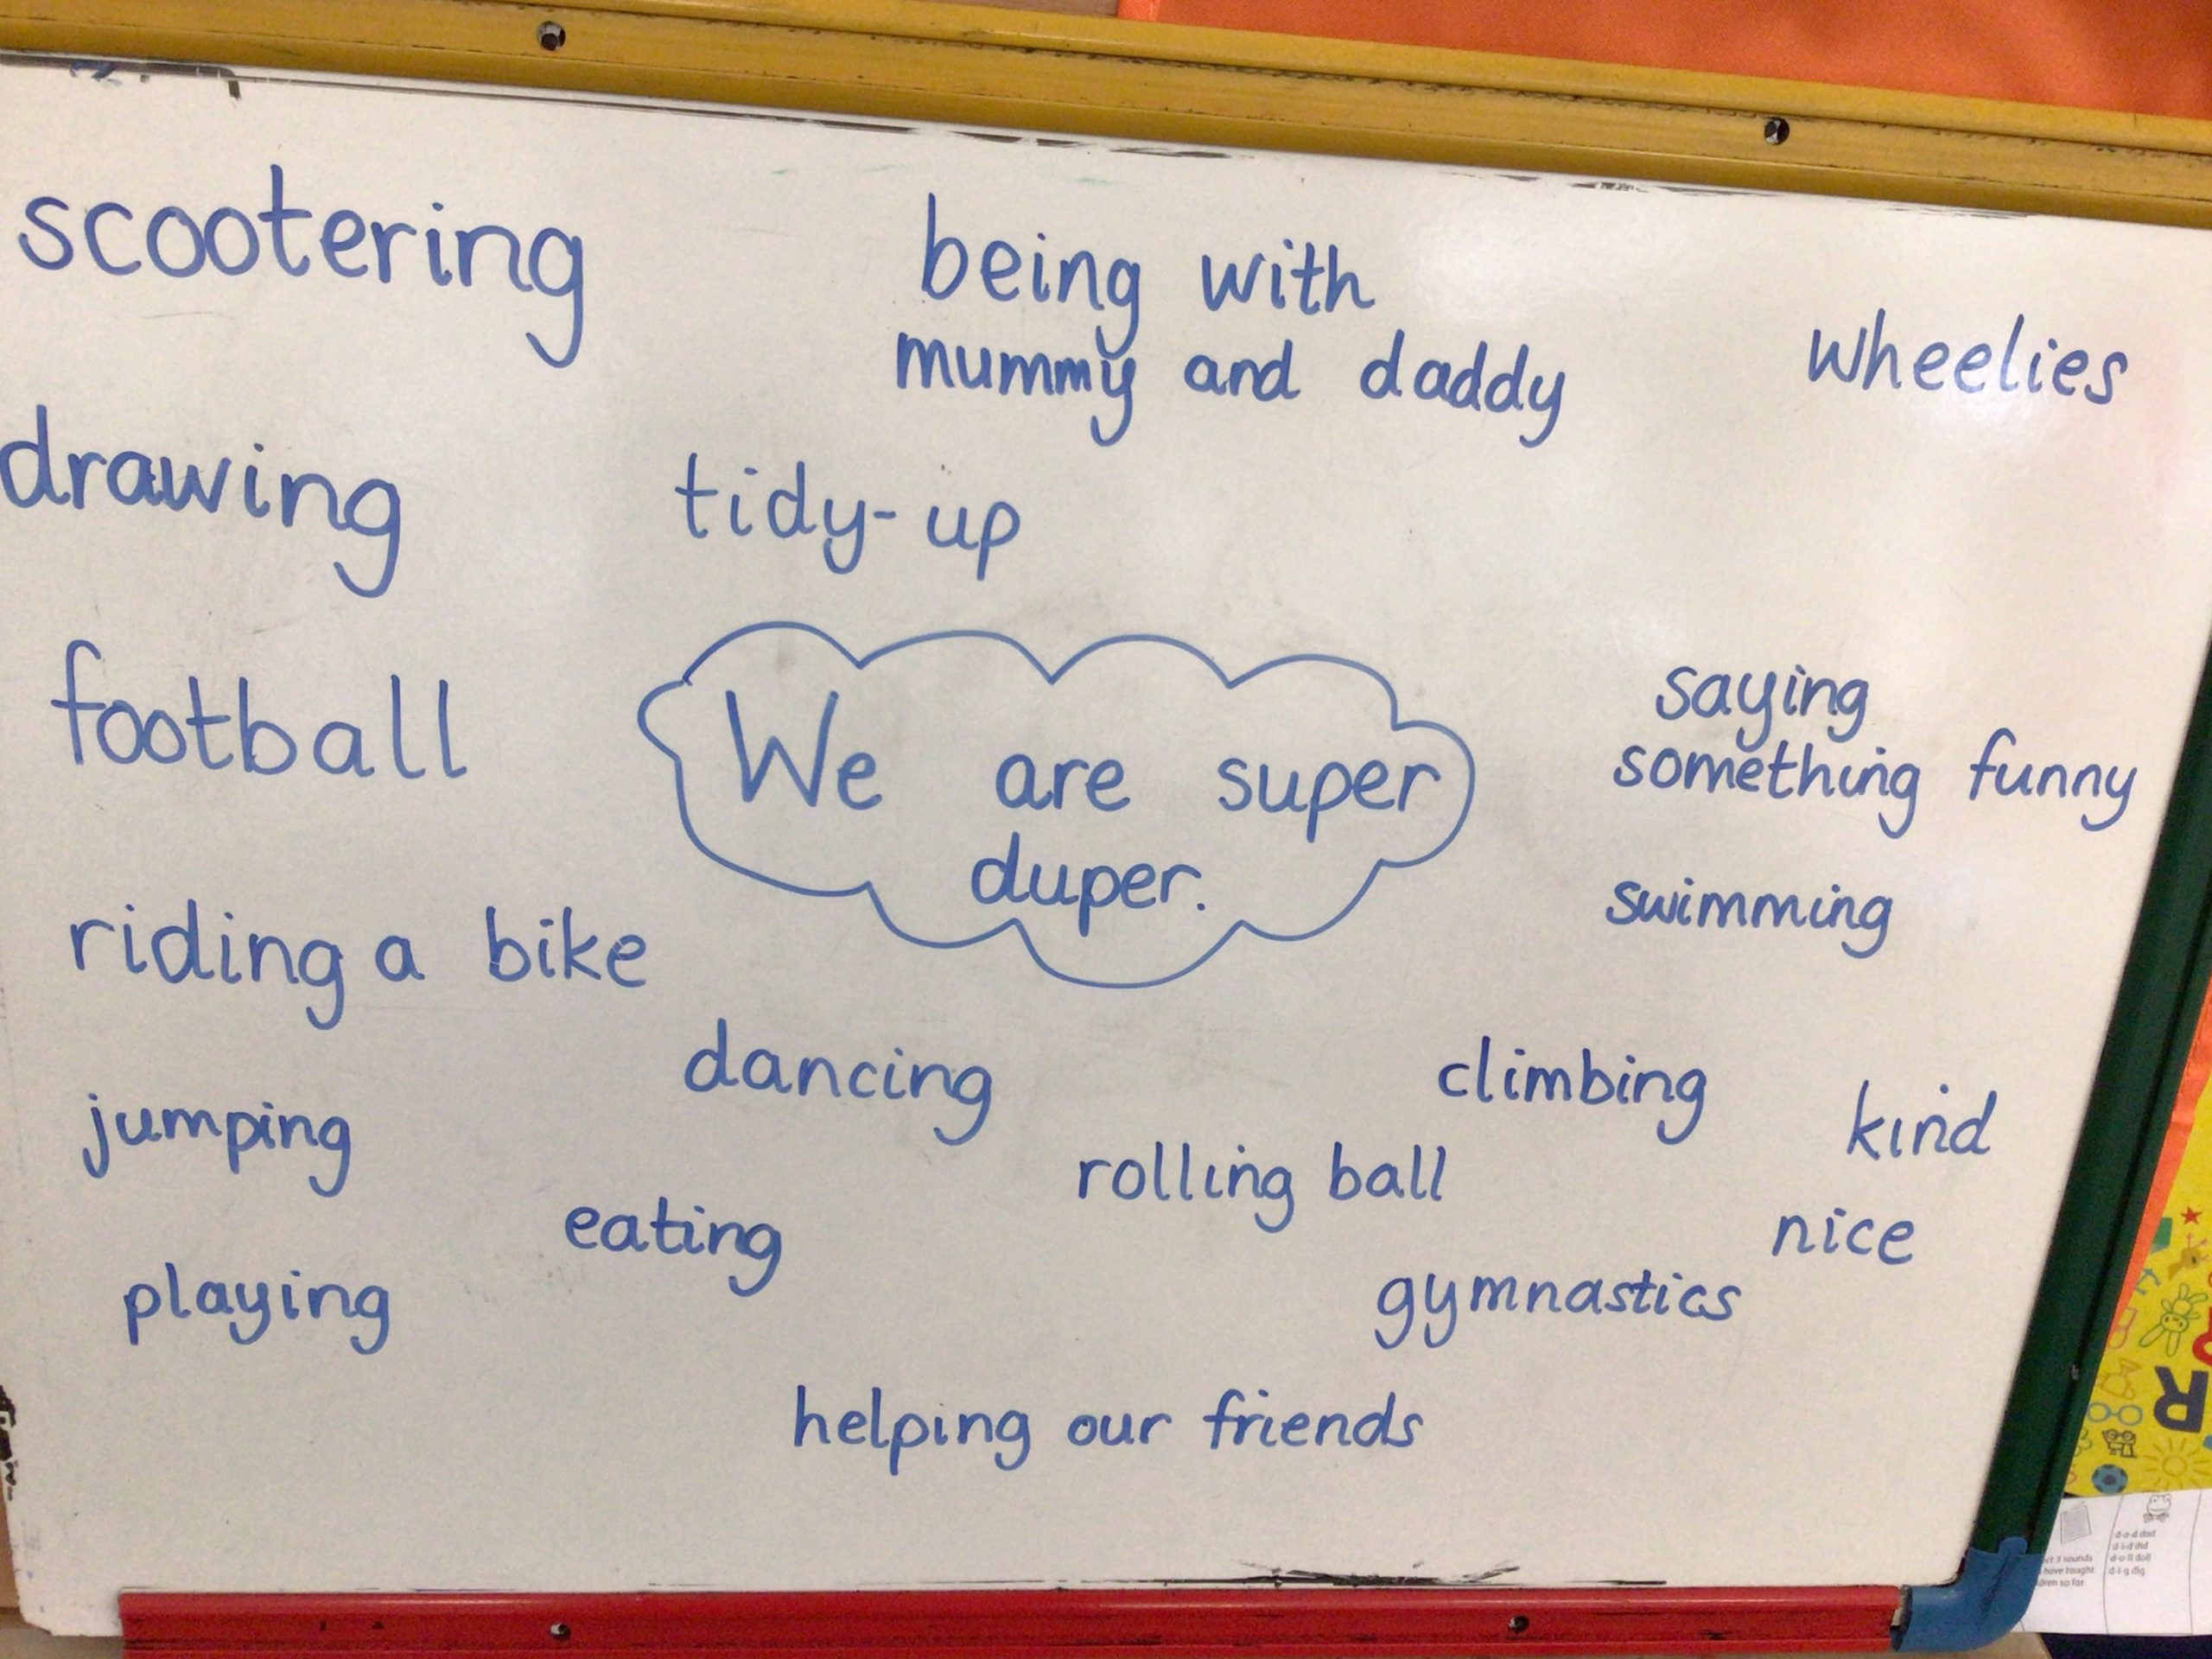 scootering
being with
mummy and daddy
wheelies
drawing
tidy-up
football
We are super
duper.
saying
something funny
swimming
riding a bike
dancing
climbing
kind
jumping
rolling ball
eating
nice
playing
gymnastics
helping our friends
R
d-o-d dod
d-i-d did
d-o-ll doll
d-i-g dig
3 sounds
have taught
so far